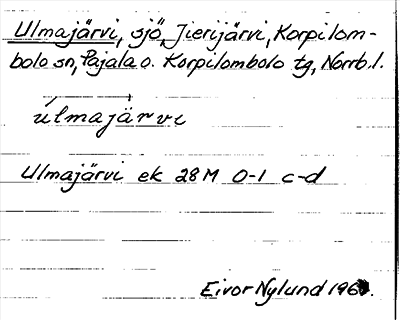 Ulmajärvi, sjö, Jierijärvi, Korpilom-
bolo sn, Pajala o. Korpilombolo tg, Norrb.l.
úlmajärvi
Ulmajärvi ek 28M 0-1 c-d
Eivor Nylund